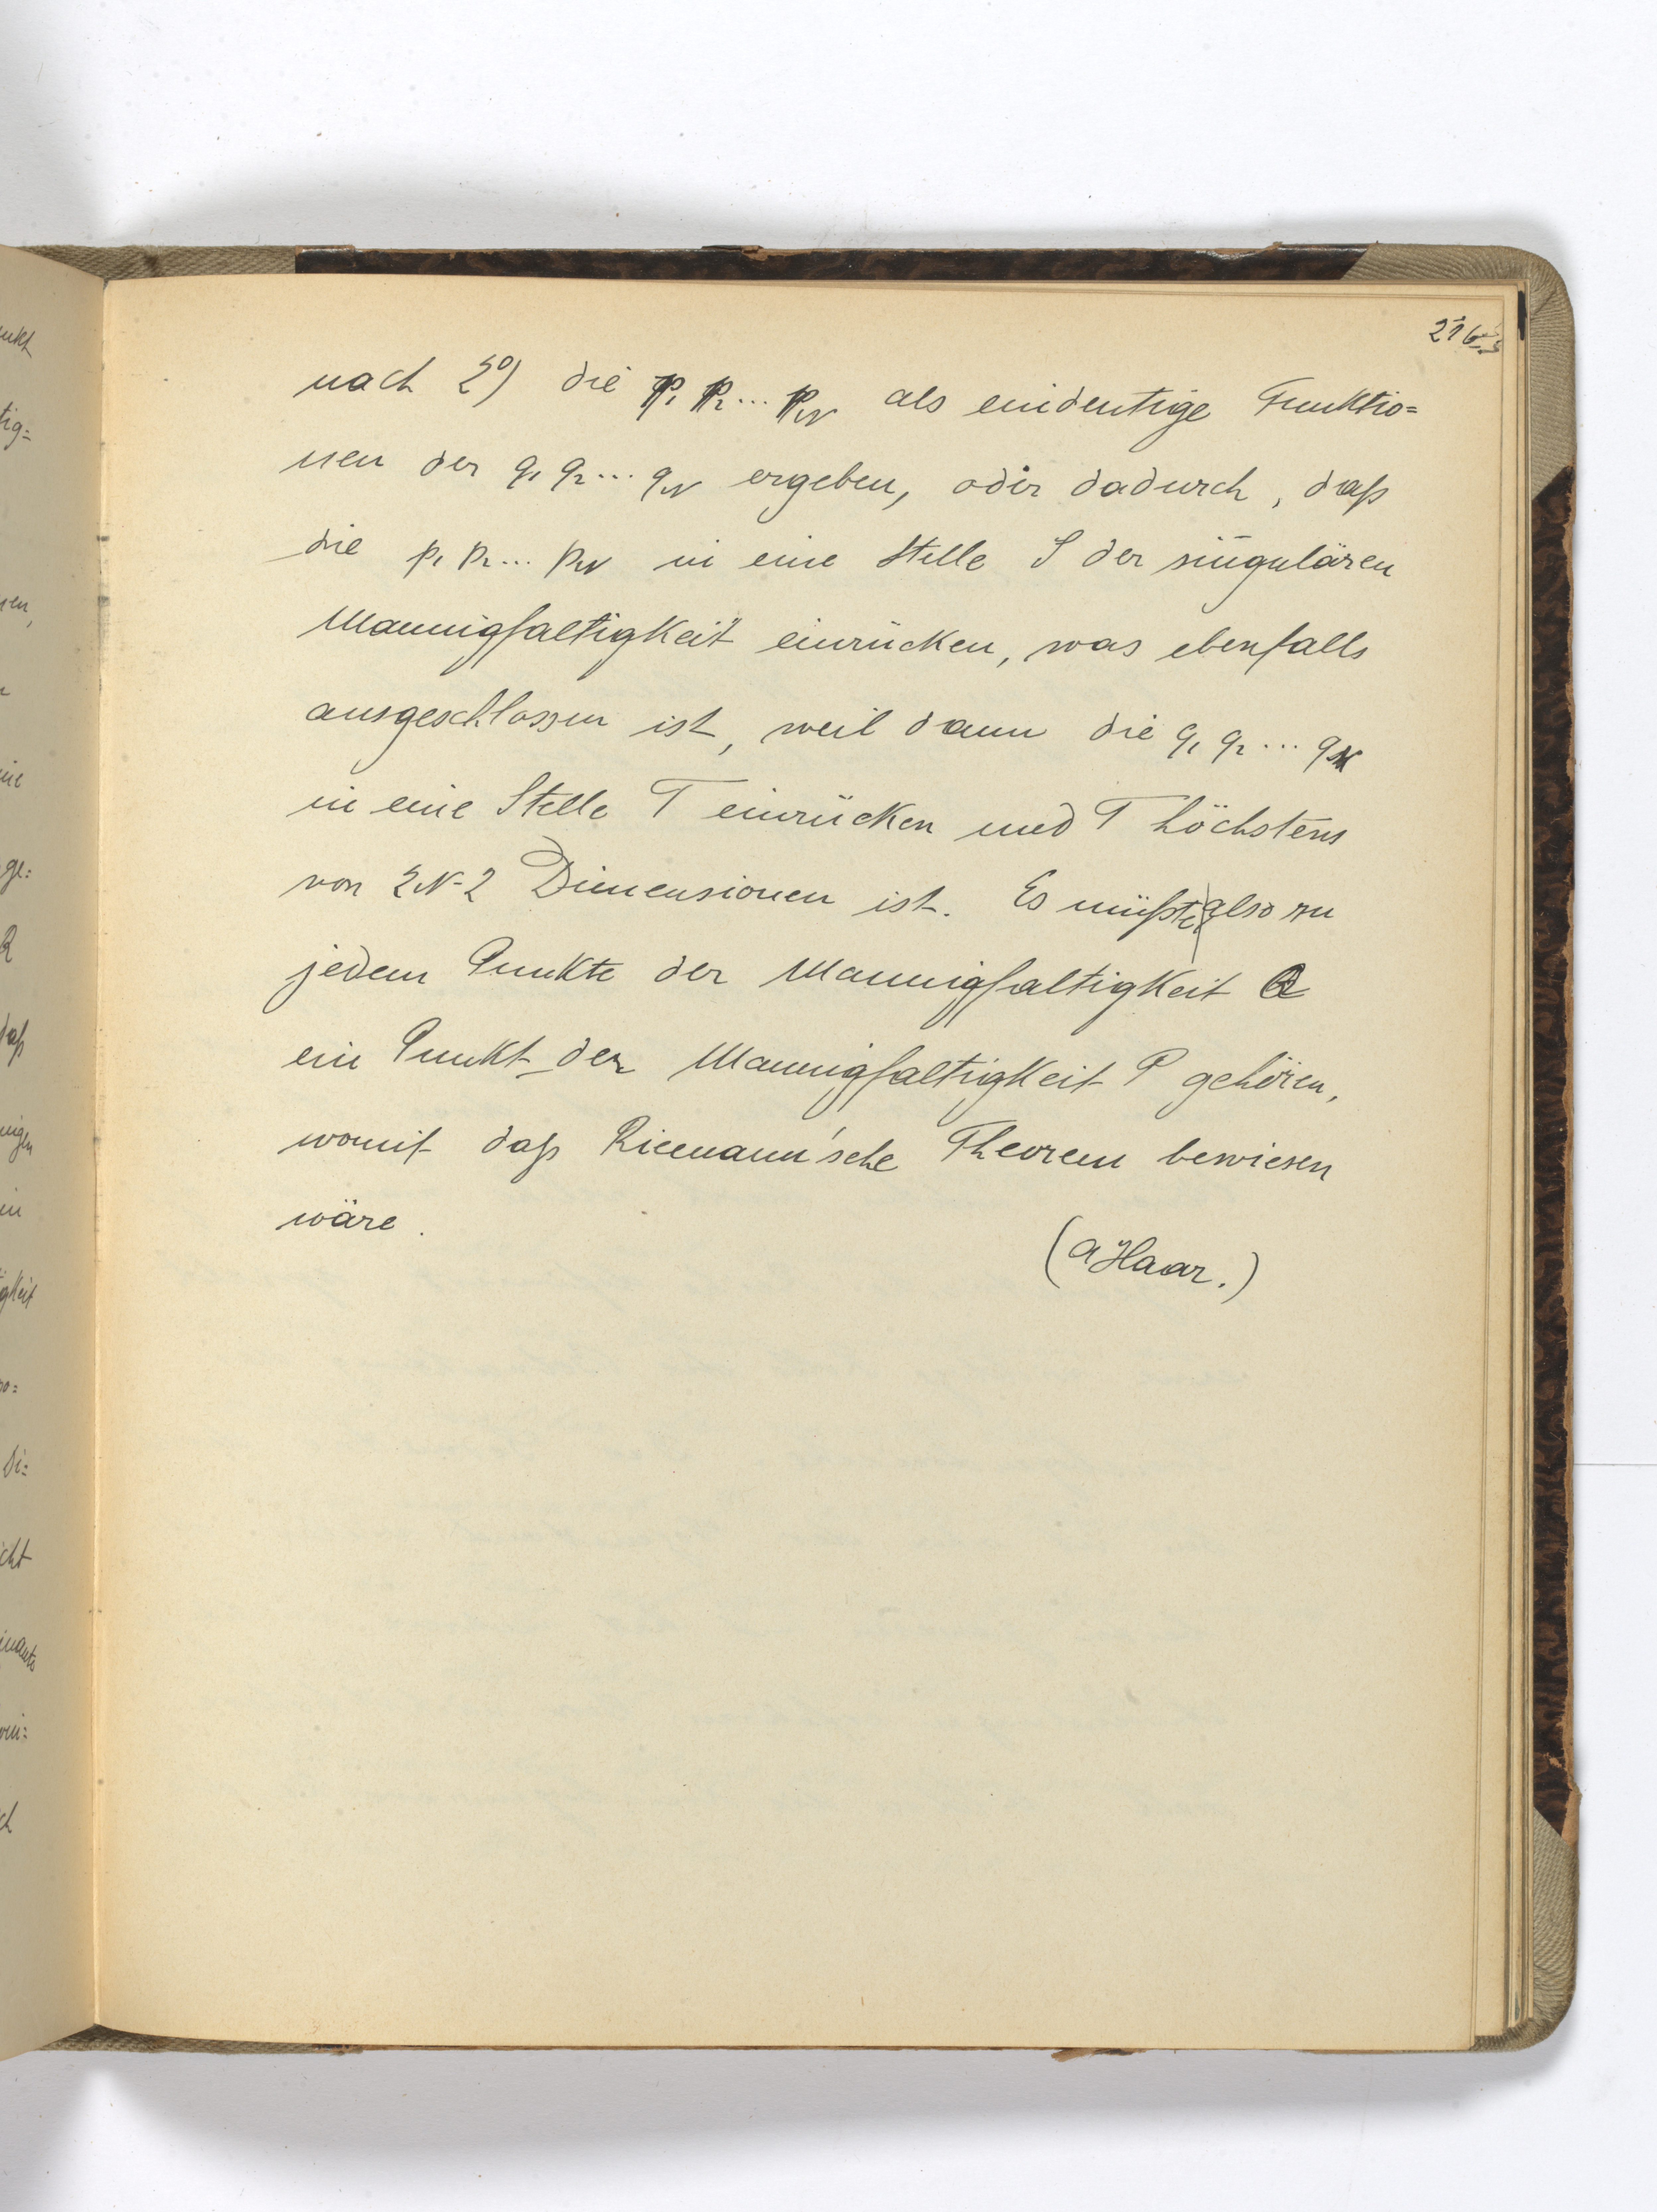 nach 2⁰) die p₁ p₂... p_N als eindeutige Funktio=
nen der q₁ q₂... q_N ergeben, oder dadurch, daß
die p₁ p₂... p_N in eine Stelle S der singulären
Mannigfaltigkeit einrücken, was ebenfalls
ausgeschlossen ist, weil dann die q₁ q₂... q_N
in eine Stelle T einrücken und T höchstens
von 2N-2 Dimensionen ist. Es müßte also zu
jedem Punkte der Mannigfaltigkeit Q
ein Punkt der Mannigfaltigkeit P gehören,
womit daß Riemann'sche Theorem bewiesen
wäre.
(A Haar.)